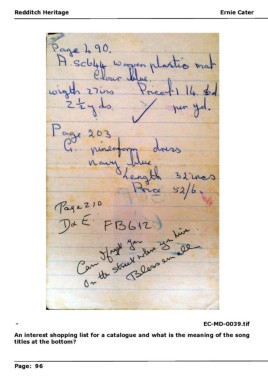 Redditch Heritage
Ernie Cater
Page 490.
A. SC644 woven plastic mat
Colour blue.
width 27ins Price £1.14.
2½ yds. per yd.
Page 203
G. pineform dress
navy blue
Length 32 inces
Price 52/6.
Page 210
D & E FBG12
Can I forget you
On the street where you live
Bless em all
EC-MD-0039.tif
An interest shopping list for a catalogue and what is the meaning of the song
titles at the bottom?
Page: 96